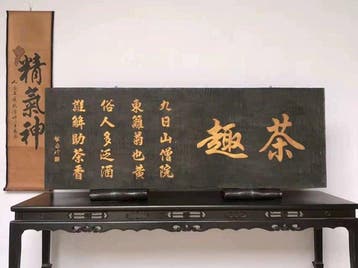 茶趣
九日山僧院
東籬菊也黄
俗人多泛酒
誰解助茶香
精氣神